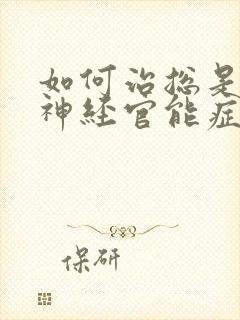 如何治总是
神经官能症
保研